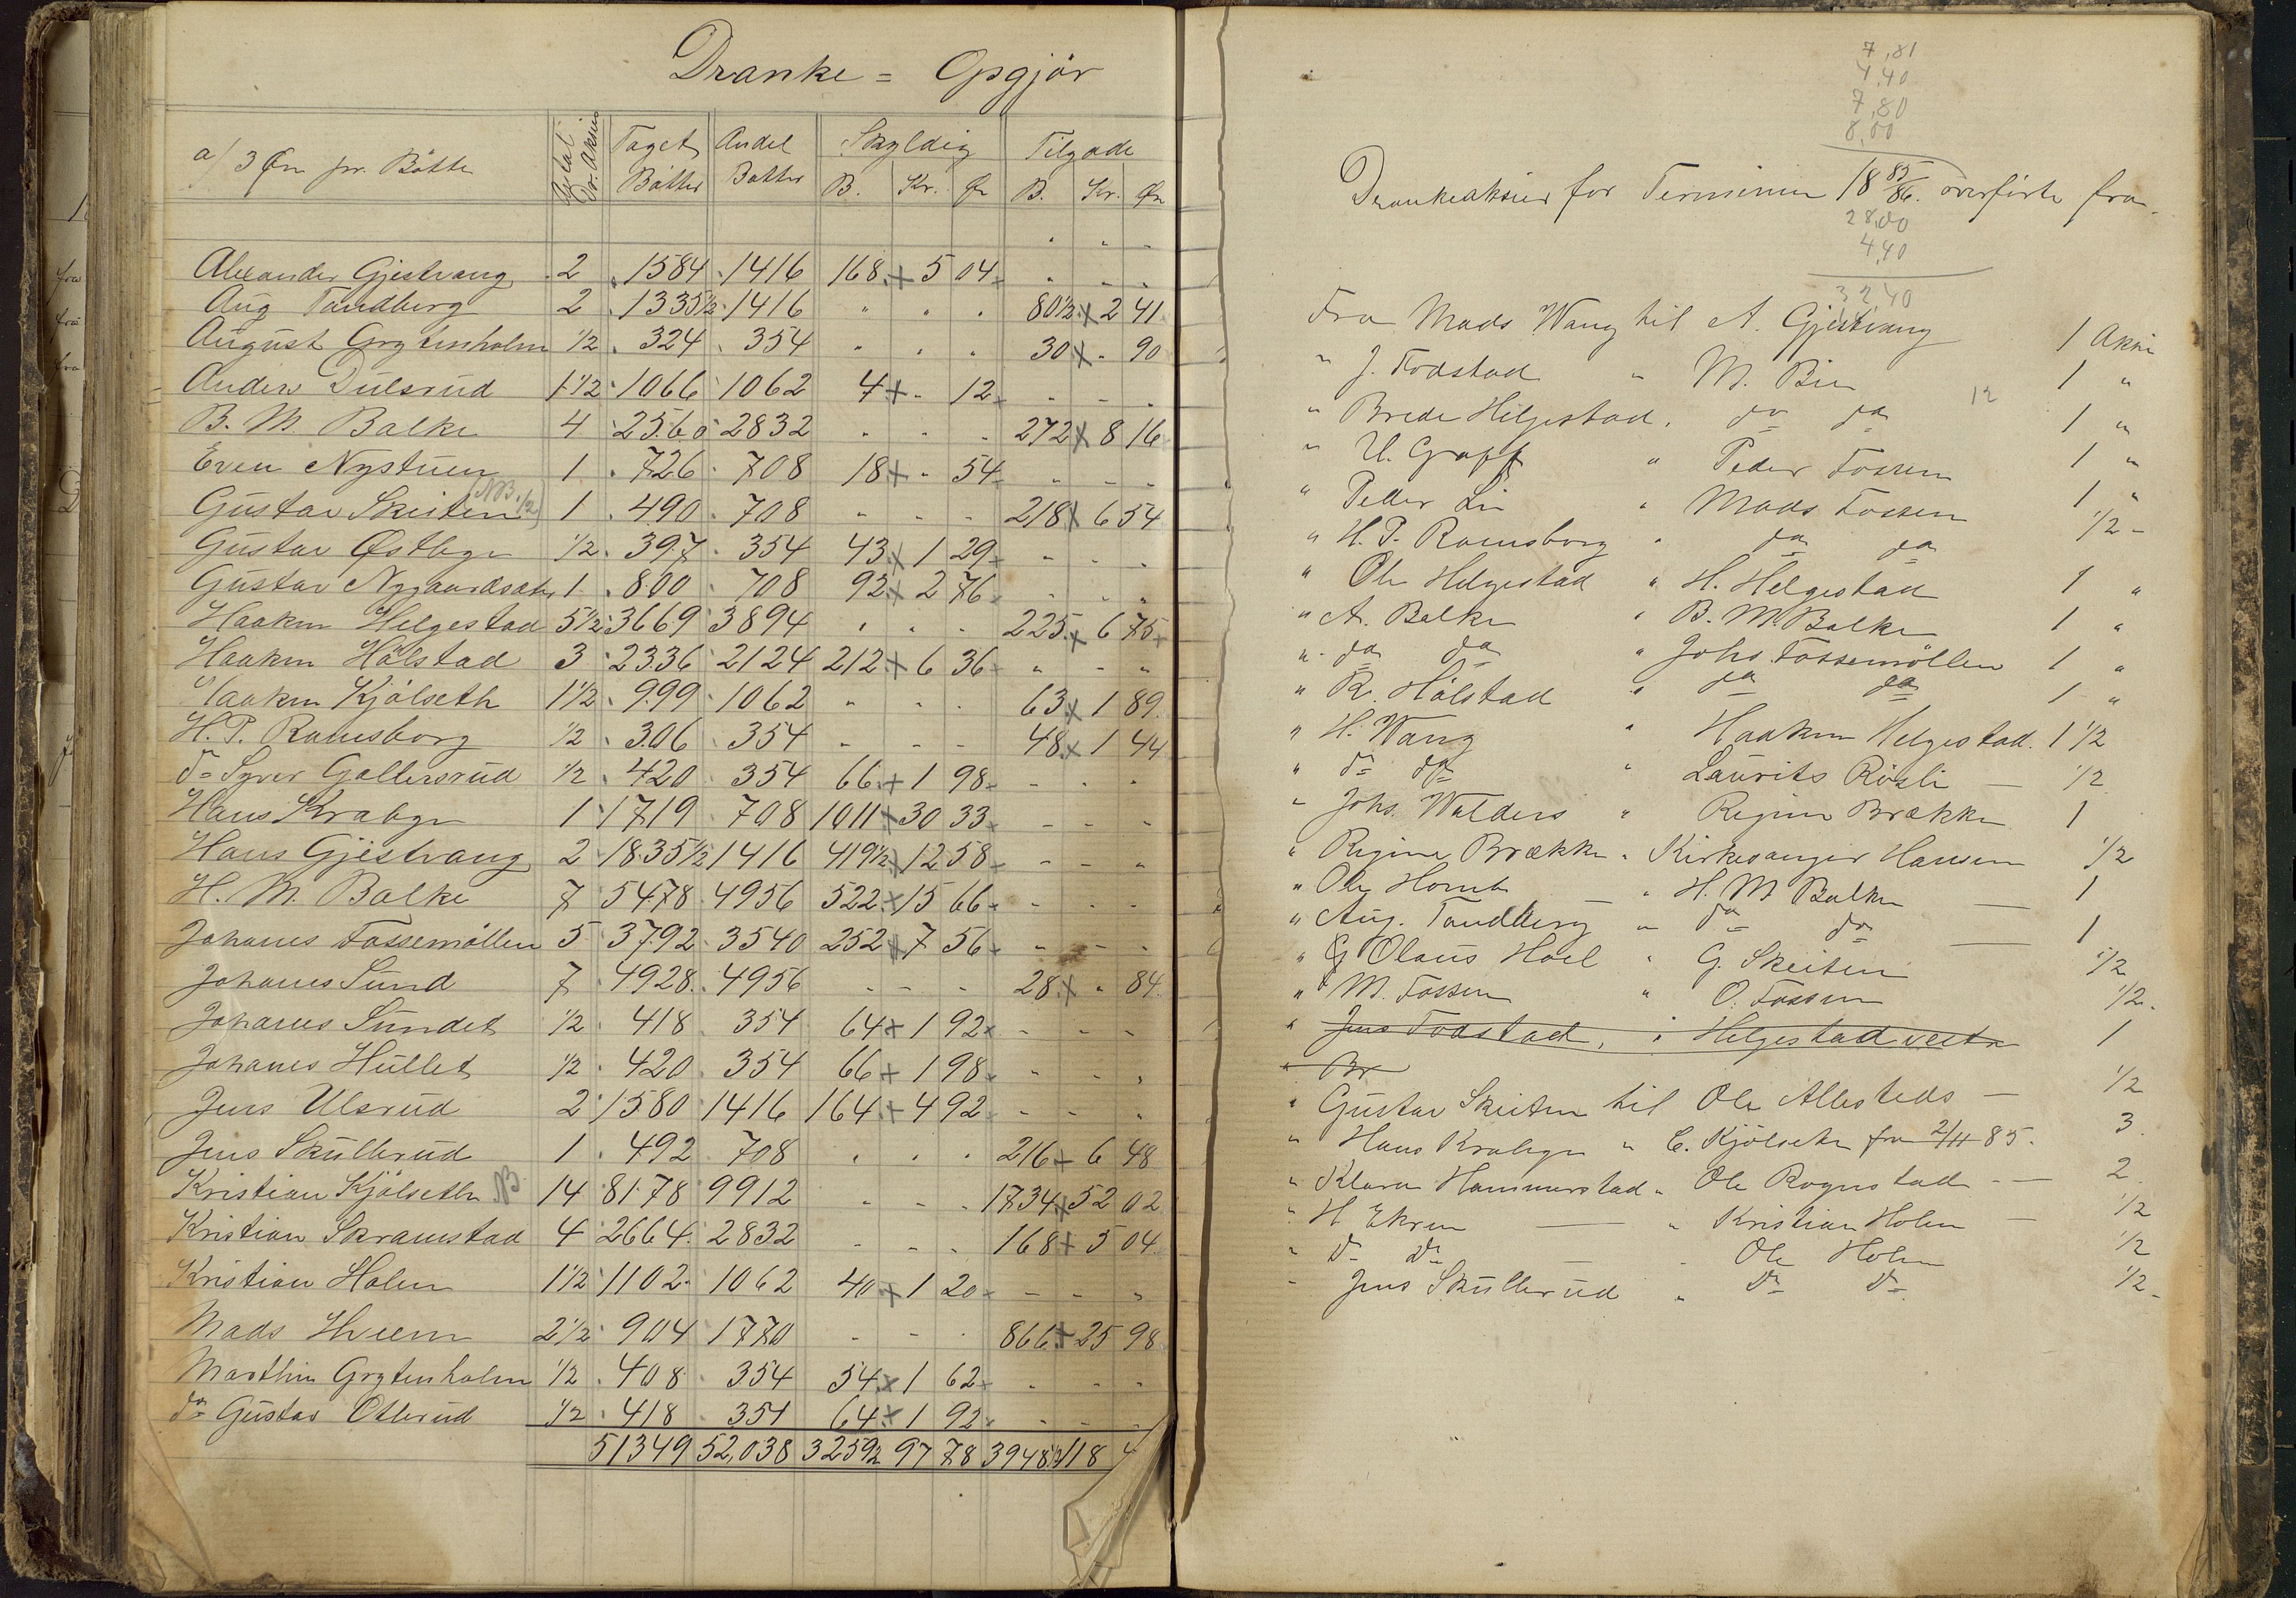 Dranke = Opgjör
a/ 3 Øre pr. Bötte Antal Dr. Aksier Taget Bötter Andel Bøtter Skyldig B. Kr. Ør Tilgode B. Kr. Ør
Alexander Gjestvang 2 1584 1416 168 + 5 04
Aug Tandberg 2 1335 1/2 1416 " " " 80 1/2 x 2 41
August Grytenholm 1/2 324 354 " " " 30 x " 90
Anders Dulsrud 1 1/2 1066 1062 4 + - 12
B. M. Balke 4 2560 2832 " " " 272 x 8 16
Even Nystuen 1 726 708 18 + - 54
Gustav Skeiten (NB. 1/2) 1 490 708 - - - 218 x 6 54
Gustav Østbye 1/2 397 354 43 x 1 29
Gustav Nygaardsæter 1 800 708 92 x 2 76
Haakon Helgestad 5 1/2 3669 3894 " " " 225 x 6 75
Haakon Hölstad 3 2336 2124 212 + 6 36 " - "
Haakon Kjölseth 1 1/2 999 1062 - - - 63 x 1 89
H. P. Ramsborg 1/2 306 354 - - - 48 x 1 44
do Syver Gallersrud 1/2 420 354 66 + 1 98 - - -
Hans Krabye 1 1719 708 1011 + 30 33 - - -
Hans Gjestvang 2 1835 1/2 1416 419 1/2 12 58 - - "
H. M. Balke 7 5478 4956 522 x 15 66 - - -
Johanes Fossemöllen 5 3792 3540 252 7 56 - - -
Johanes Sund 7 4928 4956 - - - 28 x " 84
Johanes Sundet 1/2 418 354 64 + 1 92 - - -
Johanes Hullet 1/2 420 354 66 + 1 98 - - -
Jens Ulsrud 2 1580 1416 164 + 4 92 - - "
Jens Skullerud 1 492 708 " " " 216 + 6 48
Kristian Kjölseth NB 14 8178 9912 - - - 1734 x 52 02
Kristian Skramstad 4 2664 2832 - - - 168 + 5 04
Kristian Holm 1 1/2 1102 1062 40 + 1 20 - - "
Mads Hveem 2 1/2 904 1770 - - - 866 + 25 98
Marthin Grytenholm 1/2 408 354 54 x 1 62 - - -
do Gustav Ollerud 1/2 418 354 64 x 1 92 - - -
51349 52,038 3259 1/2 97 78 3948 1/2 118 4
7,81
4,40
7,80
8,00
Drankeaksier for Terminen 18 85/86. överförte fra
28,00
4,40
32,40
Fra Mads Wang til A. Gjestvang 1 Aksie
" J. Fodstad " M. Bie 12 1 "
" Brede Helgestad " do do 1 "
" U. Graff " Peder Fossen 1 "
" Peder Lie " Mads Fossen 1 "
" H. P. Ramsborg " do do 1/2 -
" Ole Helgestad " H. Helgestad 1 "
" A. Balke " B. M Balke 1 "
" do do " Johs. Fossemöllen 1 "
" R. Hölstad " do do 1 "
" H. Wang " Haakon Helgestad. 1 1/2
" do do " Laurits Rösli — 1/2
" Johs. Walders " Regine Brække 1
" Regine Brække " Kirkesanger Hansen 1/2
" Ole Homb " H. M Balke — 1
" Aug. Tandberg " do do — 1
" G Olaus Hoel " G. Skeiten 1/2
" M. Fossen " O. Fossen 1/2.
" Jens Fodstad, " Helgestad vestre 1
" Br
" Gustav Skeiten til Ole Allesteds — 1/2
" Hans Krabye " C. Kjölseth fra 2/11 85. 3.
" Klara Hammerstad " Ole Rognstad — 2.
" H Ekren — " Kristian Holm — 1/2
" do do — " Ole Holm 1/2
" Jens Skullerud " do do 1/2